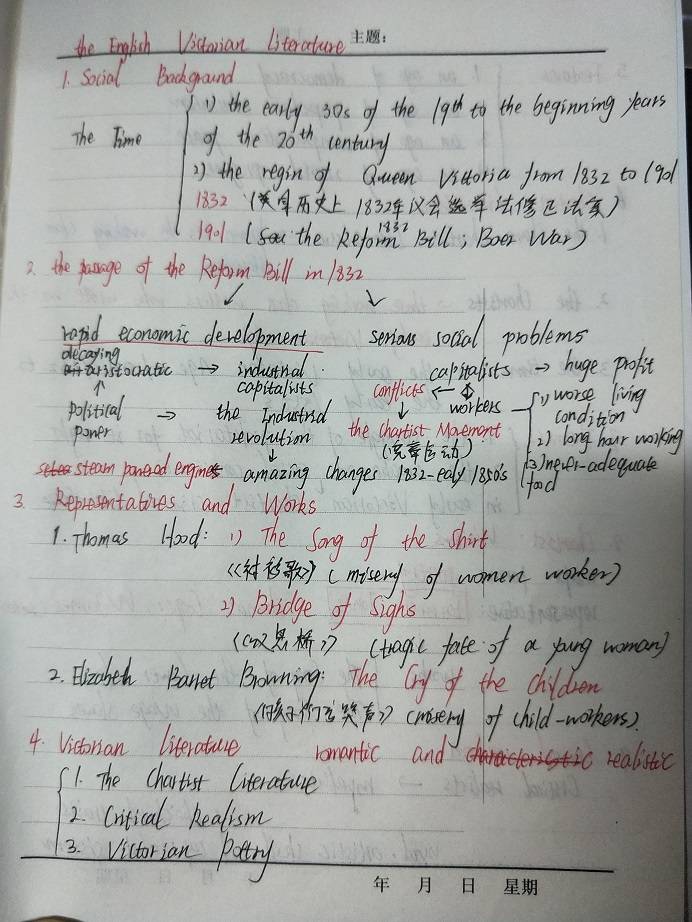 the English Victorian Literature 主题：
1. Social Background
The Time
1) the early 30s of the 19th to the beginning years
of the 20th century
2) the regin of Queen Victoria from 1832 to 1901
1832 (英国历史上 1832年议会选举法修正法案)
1901 (the Reform 1832 Bill; Boer War)
2. the passage of the Reform Bill in 1832
rapid economic development serious social problems
decaying aristocratic → industrial capitalists
capitalists → huge profit
conflicts ← workers
1) worse living condition
2) long hour working
3) never-adequate food
political power → the Industrial revolution
the Chartist Movement
(宪章运动)
steam powered engines amazing changes 1832-ealy 1850's
3. Representatives and Works
1. Thomas Hood: 1) The Song of the Shirt
《衬衫歌》 (misery of women worker)
2) Bridge of Sighs
《叹息桥》 (tragic fate of a young woman)
2. Elizabeth Barret Browning: The Cry of the Children
《孩子们的哭声》 (misery of child-workers).
4. Victorian literature romantic and characteristic realistic
1. The Chartist Literature
2. Critical Realism
3. Victorian Poetry
年 月 日 星期